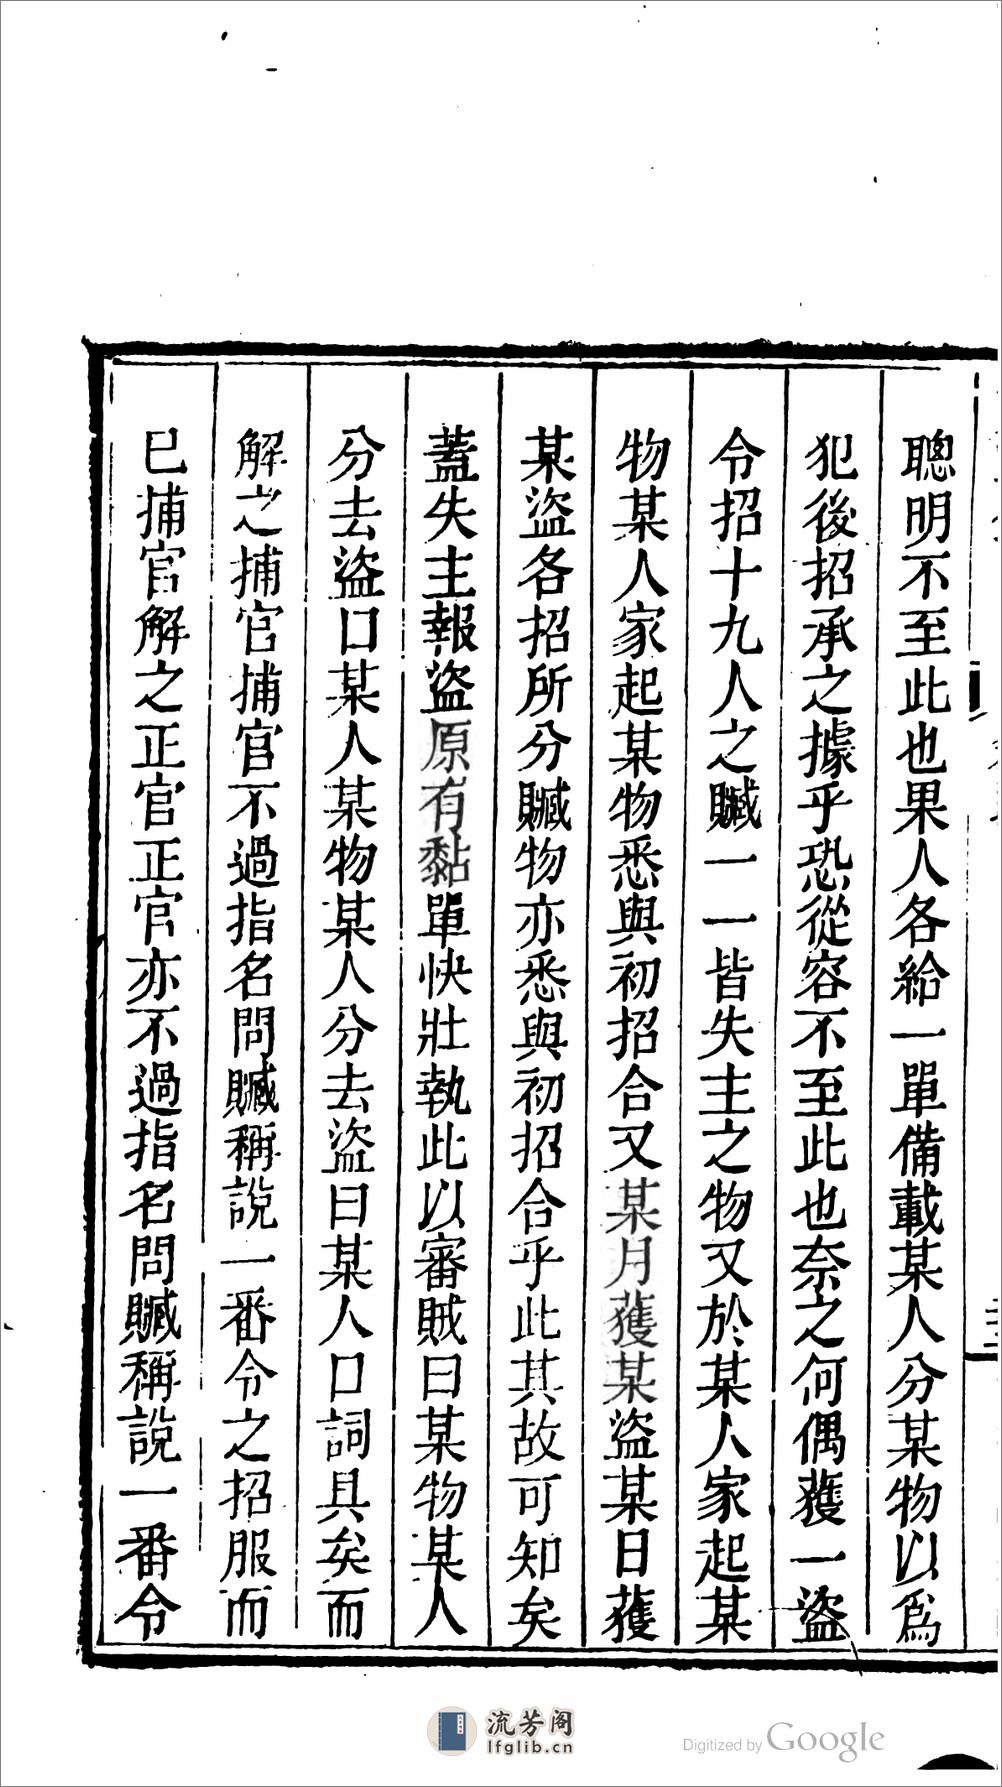 聰明不至此也果人各給一單備載某人分某物以爲
犯後招承之據乎恐從容不至此也奈之何偶獲一盜
令招十九人之贓一一皆失主之物又於某人家起某
物某人家起某物悉與初招合又某月獲某盜某日獲
某盜各招所分贓物亦悉與初招合乎此其故可知矣
蓋失主報盜原有黏單快壯執此以審賊曰某物某人
分去盜口某人某物某人分去盜曰某人口詞具矣而
解之捕官捕官不過指名問贓稱說一番令之招服而
已捕官解之正官正官亦不過指名問贓稱說一番令
流芳阁
lfglib.cn
Digitized by Google